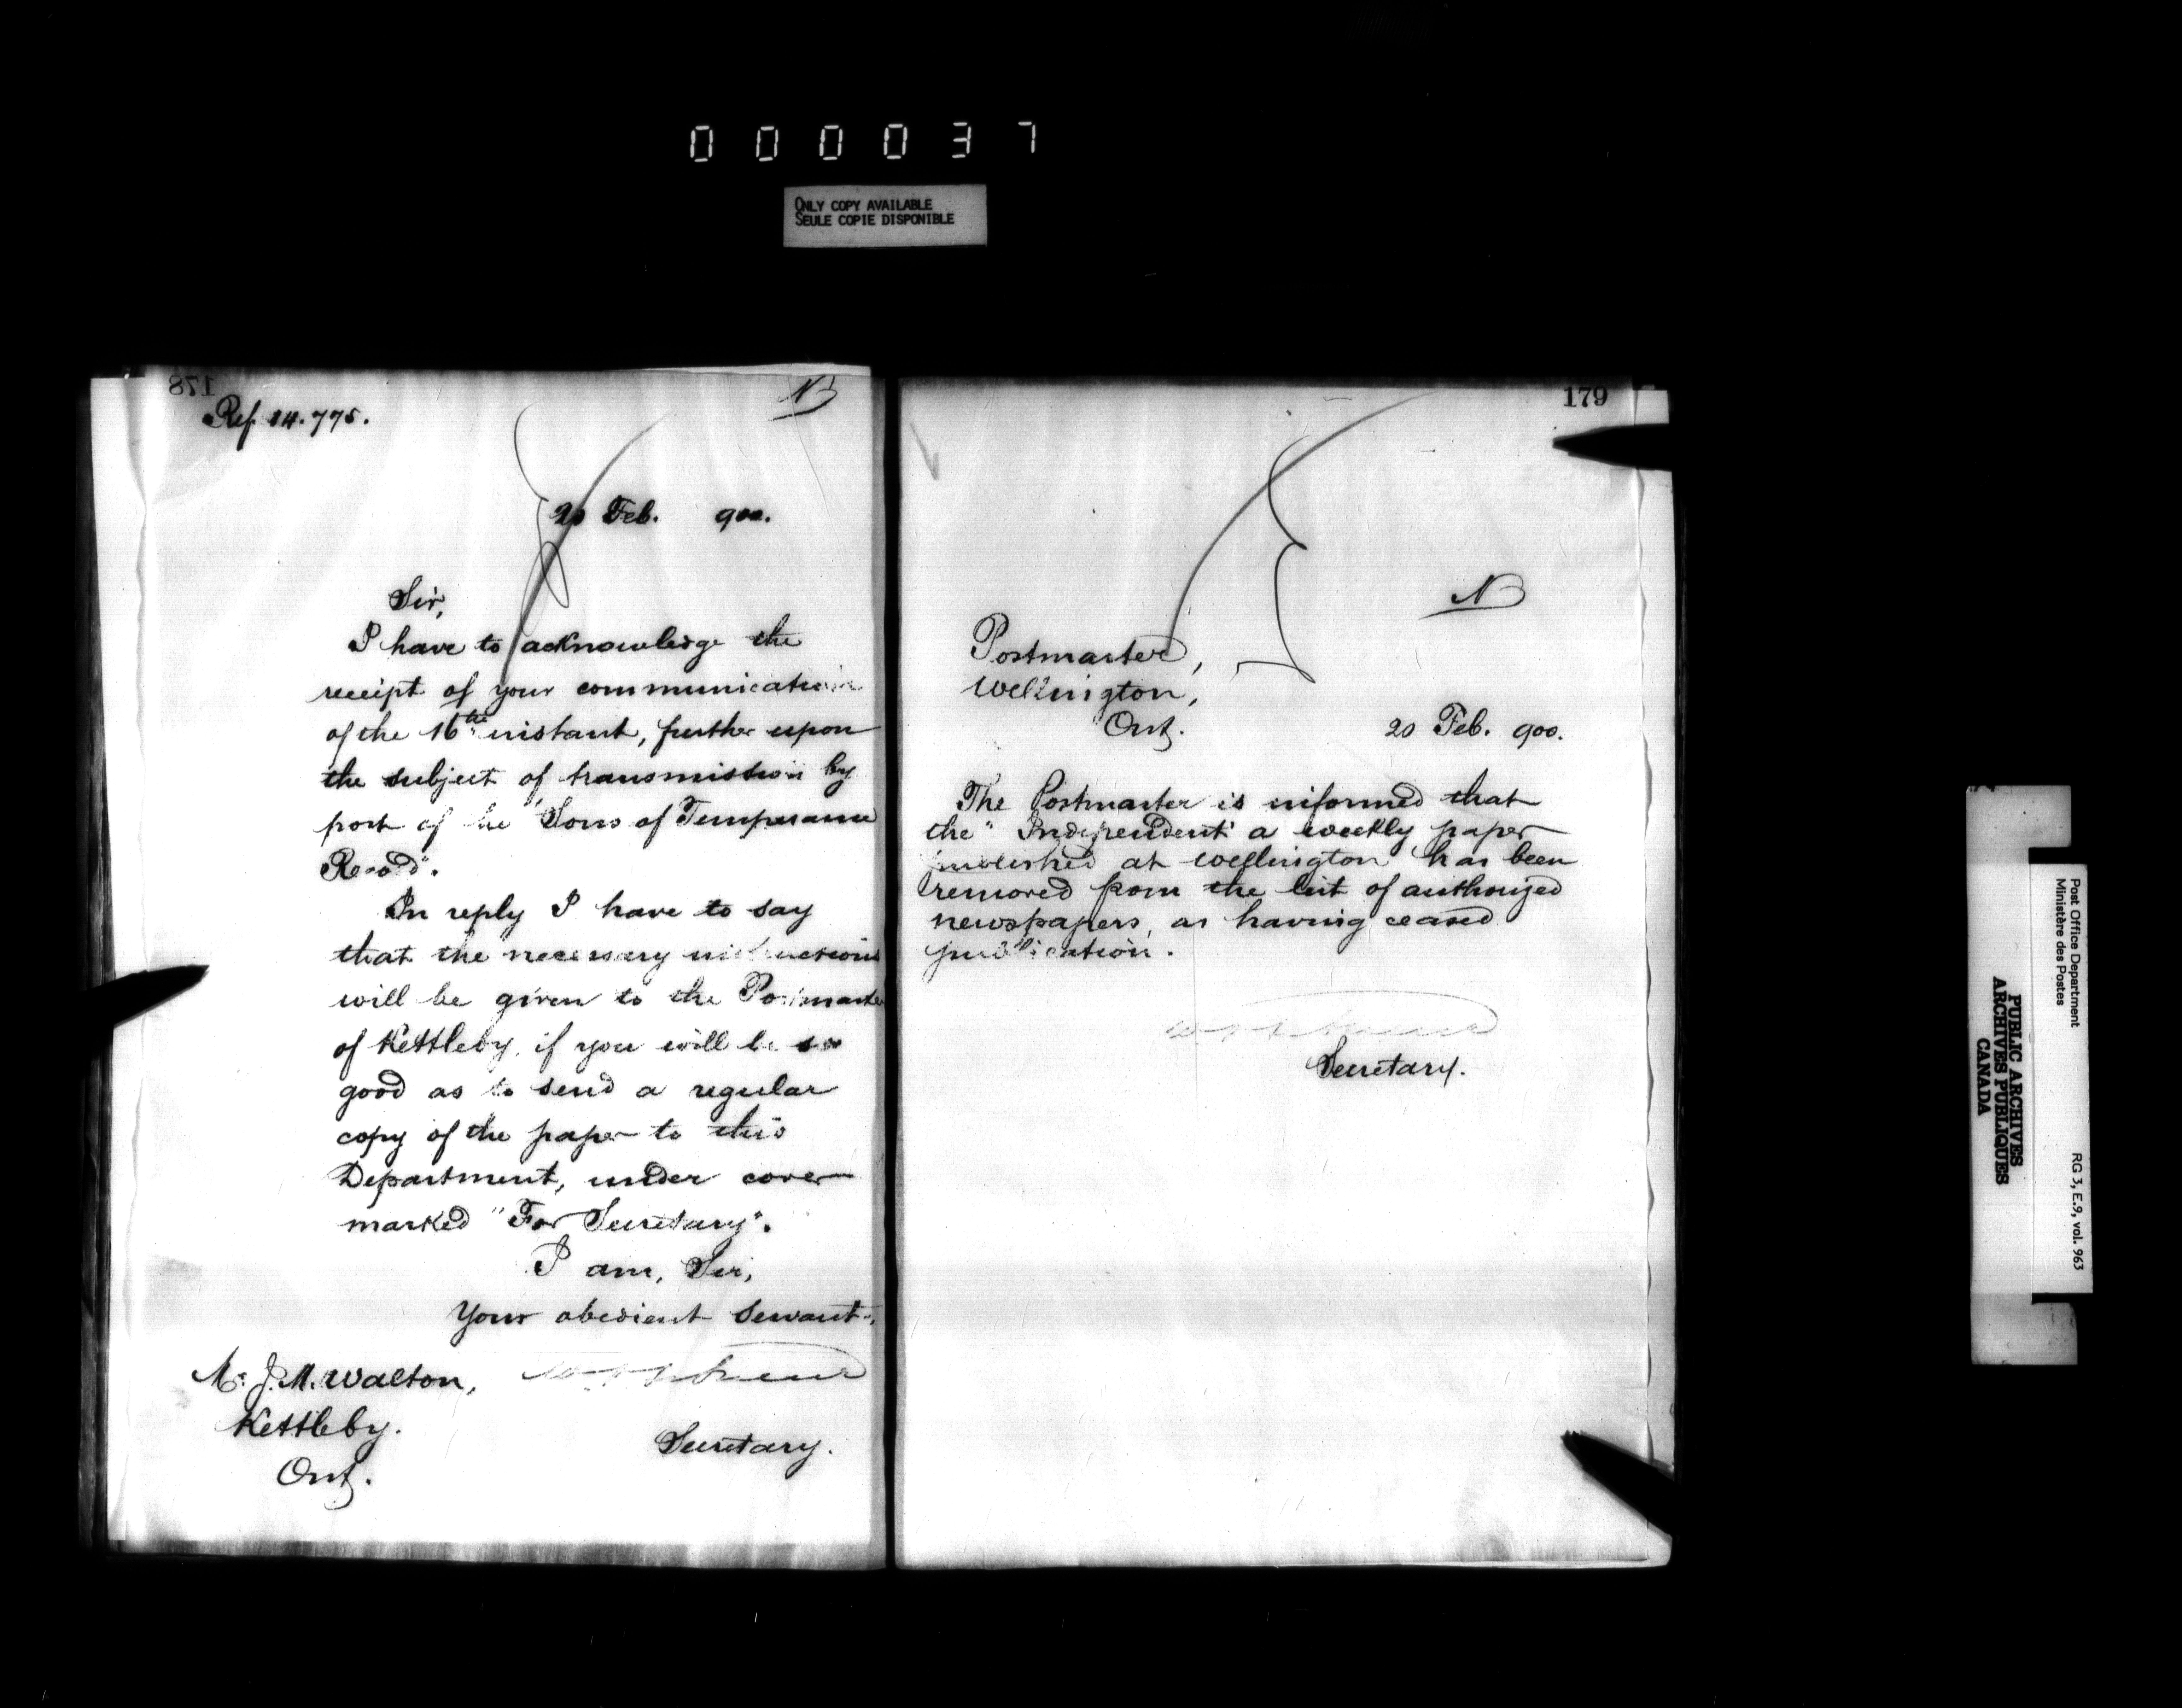 000037
ONLY COPY AVAILABLE
SEULE COPIE DISPONIBLE
178
Ref 14.775.
N
20 Feb. 900.
Sir,
I have to acknowledge the
receipt of your communication
of the 16th instant, further upon
the subject of transmission by
post of the "Sons of Temperance
Record".
In reply I have to say
that the necessary instructions
will be given to the Postmaster
of Kettleby, if you will be so
good as to send a regular
copy of the paper to this
Department, under cover
marked "For Secretary".
I am, Sir,
Your obedient Servant,
Mr. J. M. Walton,
Kettleby.
Ont.
Secretary.
179
N
Postmaster,
Wellington,
Ont.
20 Feb. 900.
The Postmaster is informed that
the "Independent" a weekly paper
published at Wellington has been
removed from the list of authorized
newspapers, as having ceased
publication.
Secretary.
Post Office Department
Ministère des Postes
RG 3, E.9, vol. 963
PUBLIC ARCHIVES
ARCHIVES PUBLIQUES
CANADA